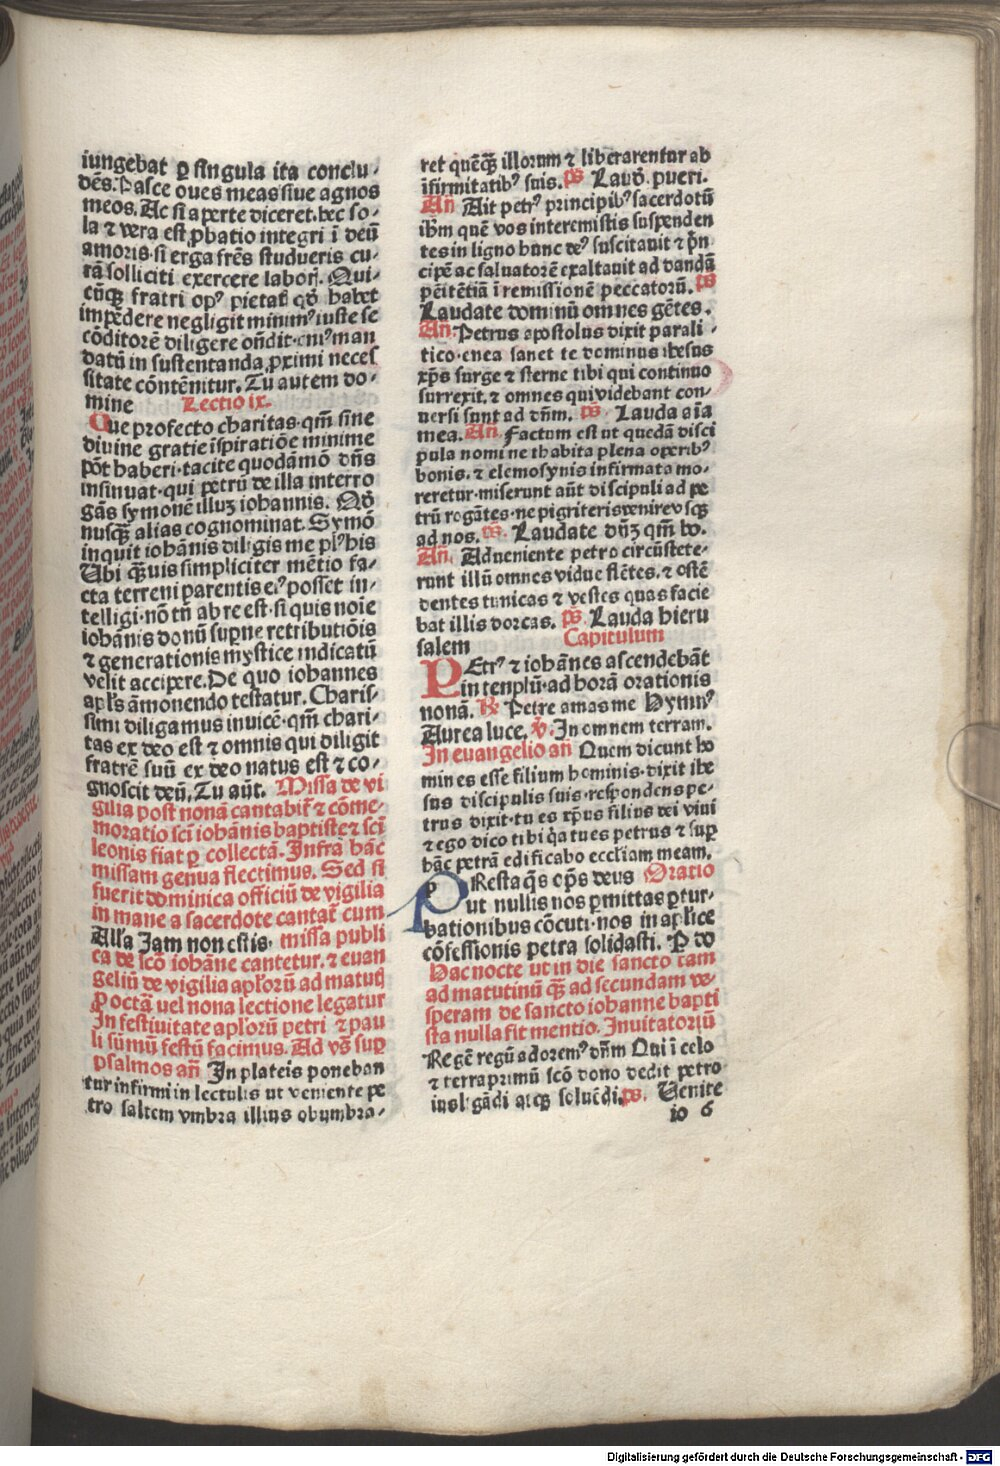 iungebat ꝑ singula ita conclu⸗
dēs. Pasce oues meas siue agnos
meos. Ac si aperte diceret. hec so⸗
la ⁊ vera est ꝓbatio integri ī deū
amoris. si erga frēs studueris cu⸗
rā solliciti exercere laboris. Qui⸗
cūqꝫ fratri opꝰ pietatis qd̄ habet
impēdere negligit minimꝰ iuste se
cōditorē diligere on̄dit. eniꝰ man
datū in sustentanda ꝓximi neces
sitate cōntēnitur. Tu autem do⸗
mine Lectio ix.
Que profecto charitas. qm̄ sine
diuine gratie īspiratiōe minime
pōt haberi. tacite quodāmō dn̄s
insinuat. qui petrū de illa interro
gās symonē illuꝫ iohannis. Qd̄
nusqꝫ̄ alias cognominat. Symō
inquit iohānis diligis me plꝰ his
Ubi qꝫ̄uis simpliciter mētio fa⸗
cta terreni parentis eiꝰ posset in⸗
telligi. nō tn̄ ab re est. si quis noīe
iohānis donū suꝑne retributiōis
⁊ generationis mystice indicatū
velit accipere. De quo iohannes
apl̄s āmonendo testatur. Charis⸗
simi diligamus inuicē. qm̄ chari⸗
tas ex deo est ⁊ omnis qui diligit
fratrē suū ex deo natus est ⁊ co⸗
gnoscit deū. Tu aūt. Missa de vi
gilia post nonā cantabit᷑ ⁊ cōme⸗
moratio scī iohānis baptiste ⁊ scī
leonis fiat ꝑ collectā. Infra hāc
missam genua flectimus. Sed si
fuerit dominica officiū de vigilia
in mane a sacerdote cantat᷑ cum
All'a Jam non estis. missa publi
ca de scō iohāne cantetur. ⁊ euan
geliū de vigilia apl'orū ad matuti
P octā vel nona lectione legatur
In festiuitate apl'orū petri ⁊ pau
li sūmū festū facimus. Ad vs̄ suꝑ
psalmos an̄ In plateis poneban
tur infirmi in lectulis ut veniente pe
tro saltem vmbra illius obumbra⸗
ret quēqꝫ̄ illorum ⁊ liberarentur ab
īfirmitatibꝰ suis. ps̄ Laud̄. pueri.
An̄ Ait petrꝰ principibꝰ sacerdotū
ihm̄ quē vos interemistis suspenden
tes in ligno hunc deꝰ suscitauit ⁊ p̄n
cipē ac saluatorē exaltauit ad dandā
pēitētiā ī remissionē peccatorū. ps̄
Laudate dominū omnes gētes.
An̄. Petrus apostolus dixit parali ⸗
tico. enea sanet te dominus ihesus
xp̄s surge ⁊ sterne tibi qui continuo
surrexit. ⁊ omnes qui videbant con⸗
uersi sunt ad dn̄m. ps̄. Lauda aīa
mea. An̄. Factum est ut quedā disci
pula nomine thabita plena operibꝰ
bonis. ⁊ elemosynis infirmata mo⸗
reretur. miserunt aūt discipuli ad pe
trū rogātes. ne pigriteris venire vsqꝫ
ad nos. ps̄. Laudate dn̄ꝫ qm̄ bo.
An̄. Adueniente petro circūstete⸗
runt illū omnes vidue flētes. ⁊ ostē
dentes tunicas ⁊ vestes quas facie
bat illis dorcas. ps̄. Lauda hieru
salem Capitulum
PEtrꝰ ⁊ iohānes ascendebāt
in tenplū. ad horā orationis
nonā. R̄. Petre amas me Hymnꝰ
Aurea luce. v̄. In omnem terram.
In euangelio an̄ Quem dicunt ho
mines esse filium hominis. dixit ihe
sus discipulis suis. respondens pe⸗
trus dixit. tu es xp̄us filius dei viui
⁊ ego dico tibi q̇a tu es petrus ⁊ suꝑ
hāc petrā edificabo eccl'iam meam.
PResta q̄s op̄s deus Oratio
ut nullis nos ꝑmittas ꝑtur⸗
bationibus cōcuti. nos in apl'ice
cōfessionis petra solidasti. P do
Hac nocte ut in die sancto tam
ad matutinū qꝫ̄ ad secundam ve⸗
speram de sancto iohanne bapti
sta nulla fit mentio. Inuitatoriū
Regē regū adoremꝰ dn̄m Qui ī celo
⁊ terra primū scō dono dedit petro
ius ligādi atqꝫ soluēdi. ps̄. Venite
io 6
Digitalisierung gefördert durch die Deutsche Forschungsgemeinschaft - DFG